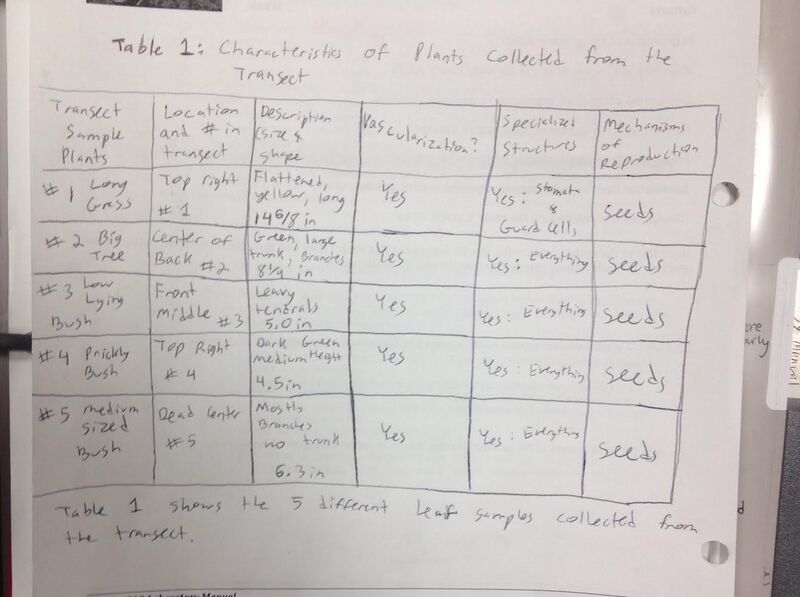 Table 1: Characteristics of Plants Collected from the
Transect
Transect
Sample
Plants
Location
and # in
transect
Description
(size &
shape
Vascularization?
Specialized
Structures
Mechanisms
of
Reproduction
#1 Long
Grass
Top right
#1
Flattened,
yellow, long
14 6/8 in
Yes
Yes: Stomata
&
Guard Cells
seeds
#2 Big
Tree
Center of
Back #2
Green, large
trunk, Branches
8 1/4 in
Yes
Yes: Everything
seeds
#3 Low
Lying
Bush
Front
Middle #3
Leavy
tendrals
5.0 in
Yes
Yes: Everything
seeds
#4 Prickly
Bush
Top Right
#4
Dark Green
medium Height
4.5in
Yes
Yes: Everything
seeds
#5 medium
sized
Bush
Dead Center
#5
Mostly
Branches
no trunk
6.3 in
Yes
Yes: Everything
seeds
Table 1 shows the 5 different leaf samples collected from
the transect.
Laboratory Manual